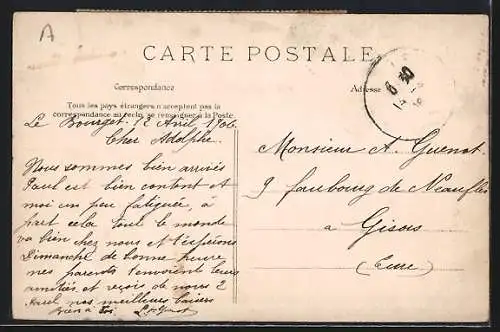 A
CARTE POSTALE
Correspondance
Adresse
Tous les pays étrangers n'acceptent pas la
correspondance au recto, se renseigner à la Poste.
Le Bourget. 12 Avril 1906
Cher Adolphe.
Nous sommes bien arrivés
Paul est bien content et
moi un peu fatiguée, à
part cela tout le monde
va bien chez nous et t'espérons
Dimanche de bonne heure
mes parents t'envoient leurs
amitiés et reçois de nous 2
Paul nos meilleurs baisers
Bien à toi
Monsieur A. Guenot
9 faubourg de Neaufles
à Gisors
(Eure)
6 30